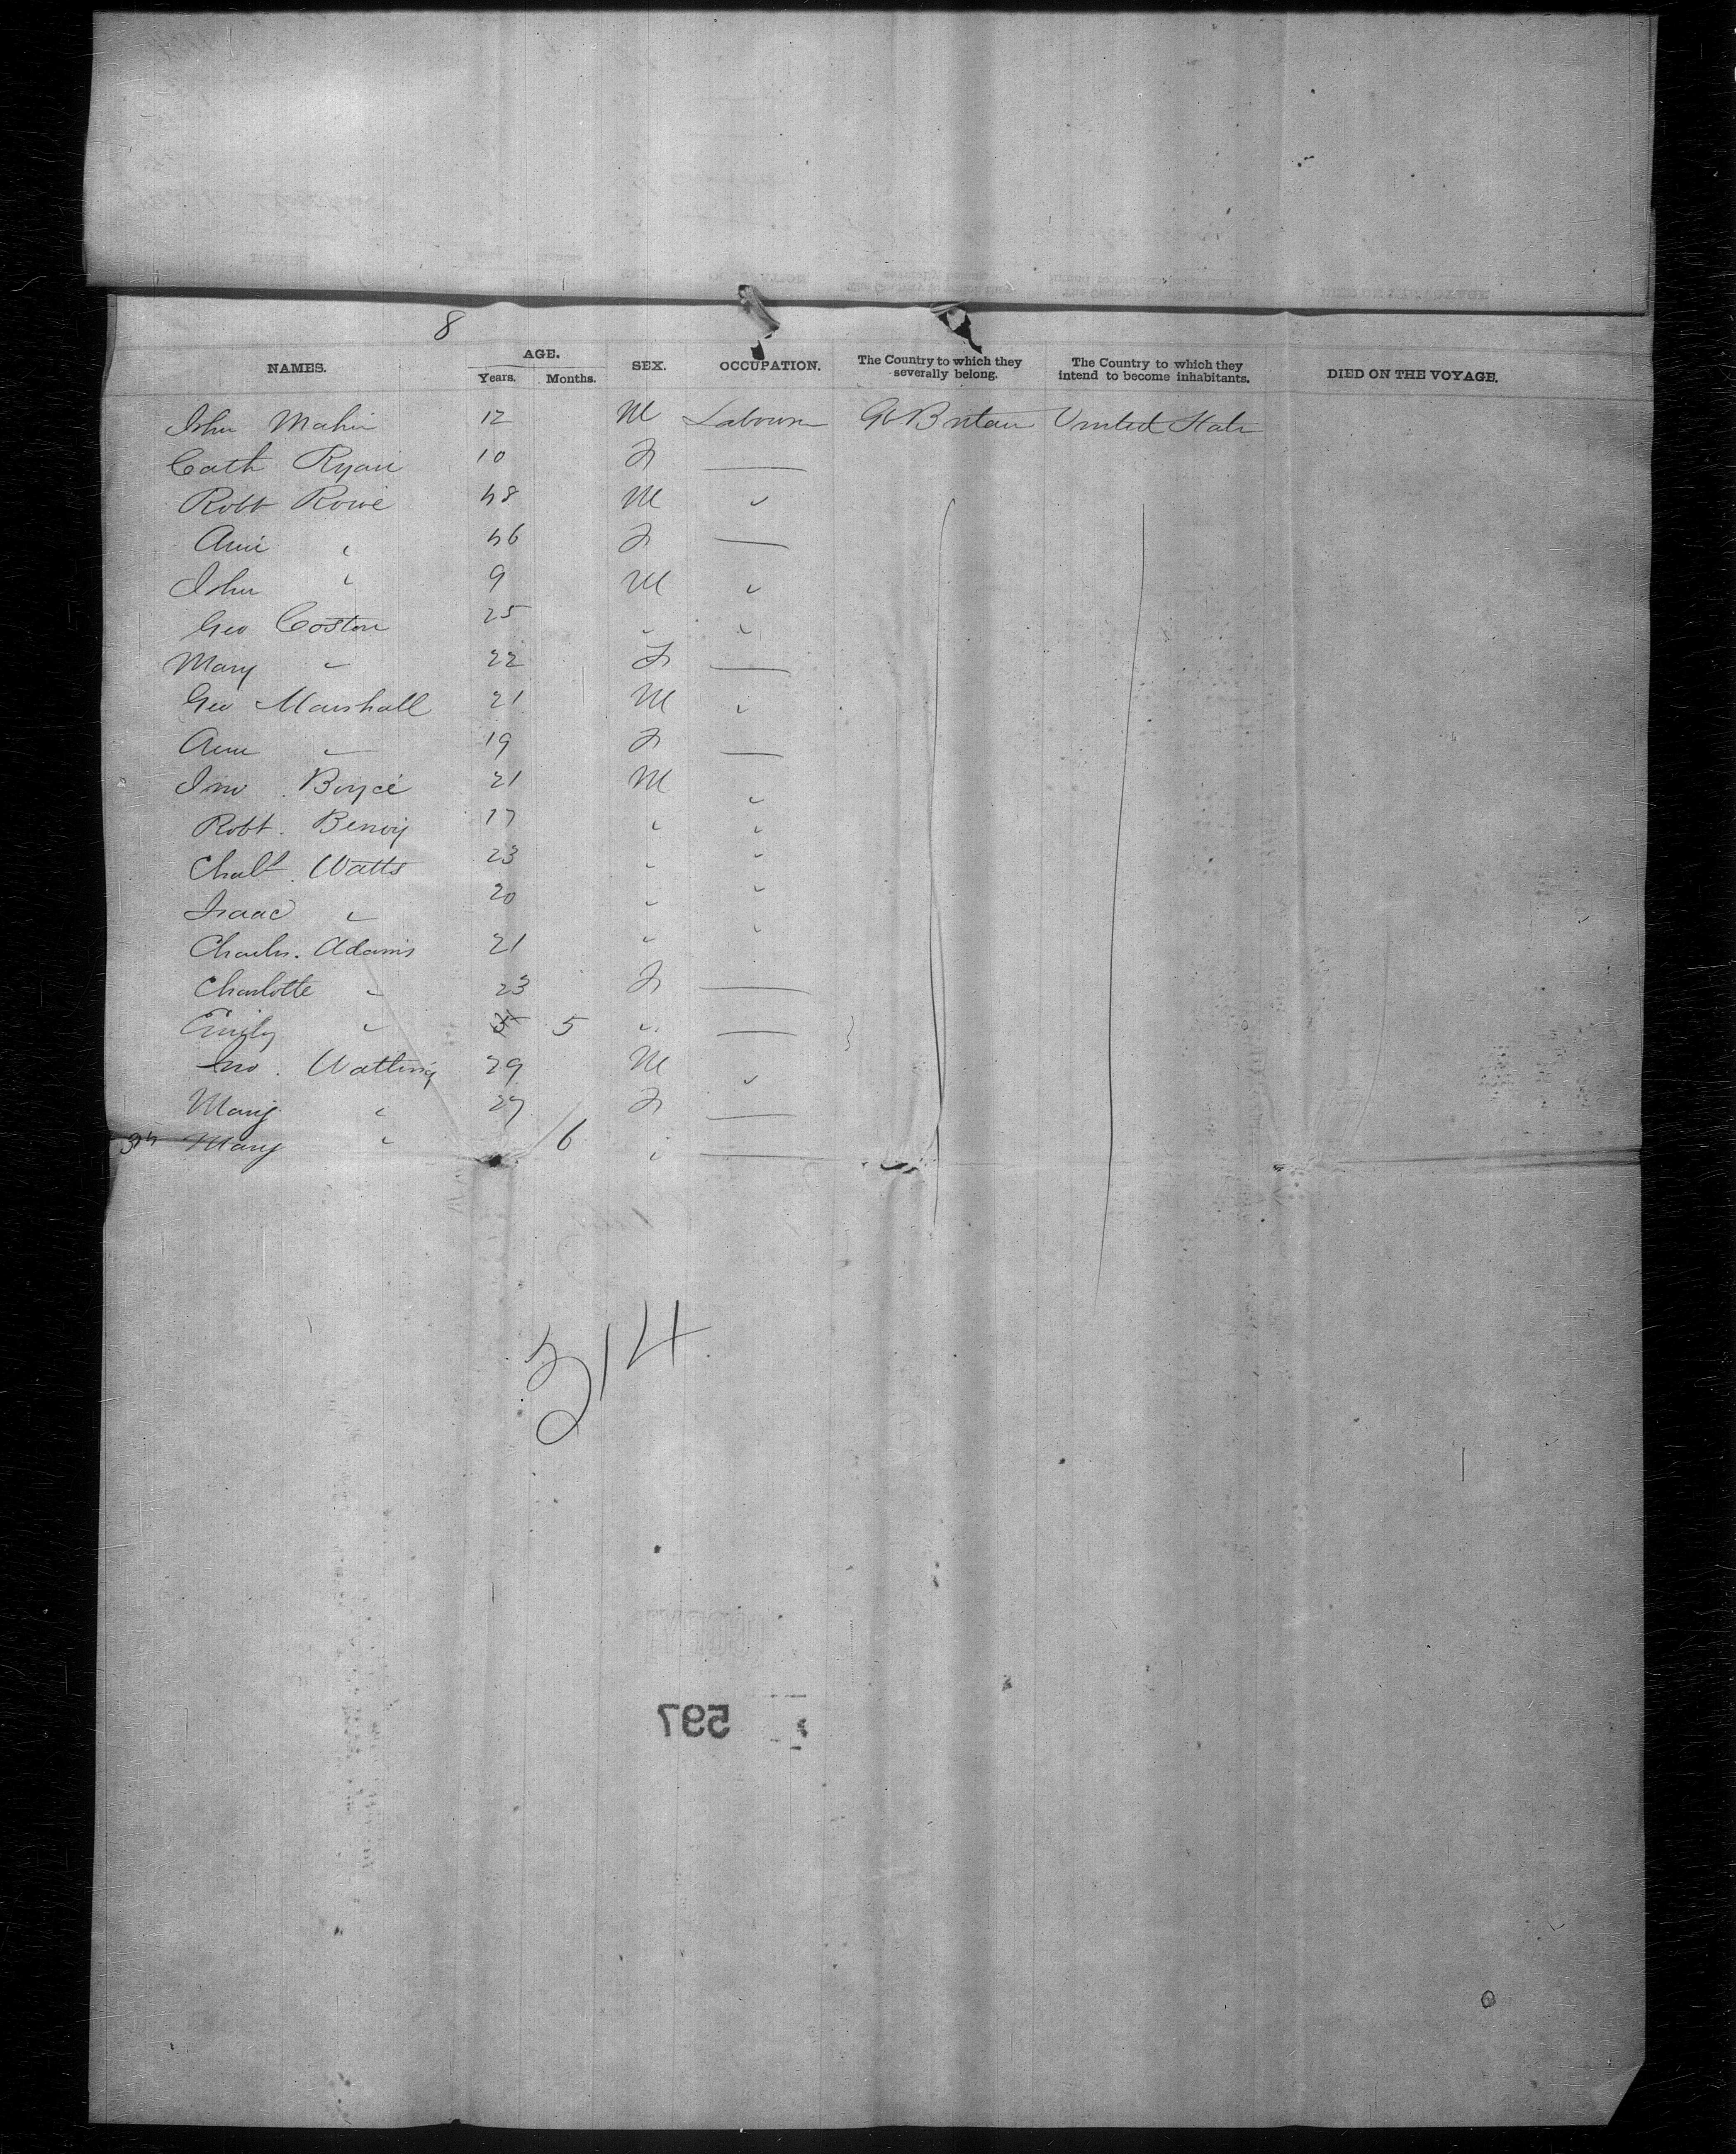 8
NAMES. AGE. Years. Months. SEX. OCCUPATION. The Country to which they severally belong. The Country to which they intend to become inhabitants. DIED ON THE VOYAGE.
John Mahin 12 M Labourer Gt Britain United State
Cath Ryan 10 F —
Robt Rowe 48 M "
Ann " 46 F —
John " 9 M "
Geo Coston 25 " "
Mary " 22 F —
Geo Marshall 21 M "
Ann " 19 F —
Jno Boyce 21 M "
Robt. 17 " "
Watts 23 " "
Isaac " 20 " "
Charles. Adams 21 " "
Charlotte " 23 F —
Emily " 5 " —
Jno. Watling 29 M "
Mary " 27 F —
Mary " 6 " —
314
597